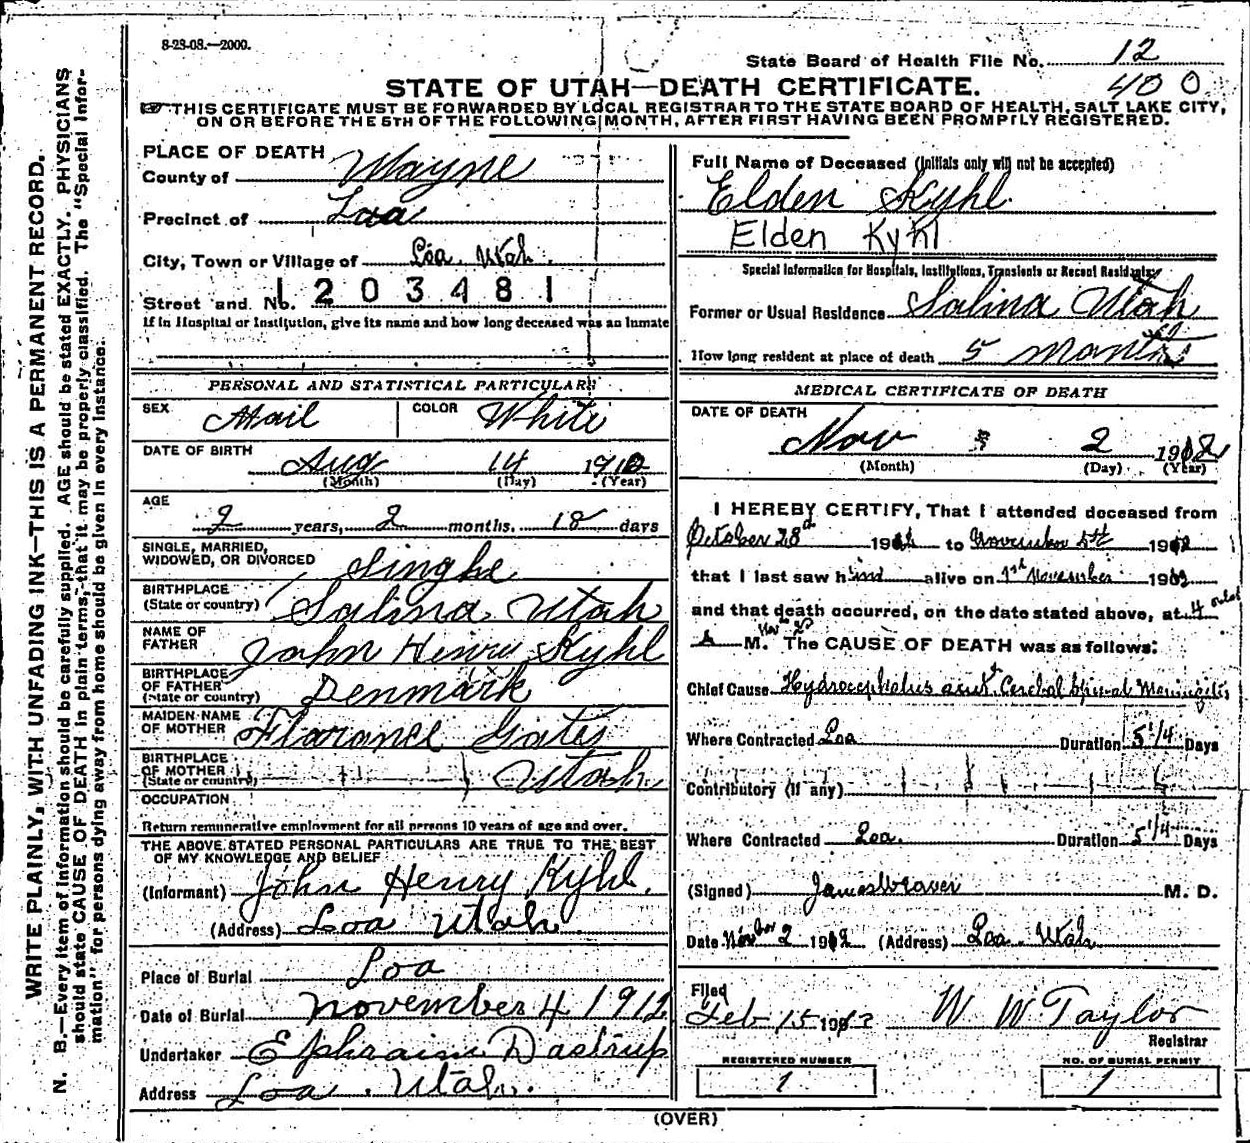 8-28-08.—2000.
State Board of Health File No. 12
400
STATE OF UTAH—DEATH CERTIFICATE.
☞ THIS CERTIFICATE MUST BE FORWARDED BY LOCAL REGISTRAR TO THE STATE BOARD OF HEALTH, SALT LAKE CITY,
ON OR BEFORE THE 5TH OF THE FOLLOWING MONTH, AFTER FIRST HAVING BEEN PROMPTLY REGISTERED.
WRITE PLAINLY, WITH UNFADING INK—THIS IS A PERMANENT RECORD.
N. B.—Every item of information should be carefully supplied. AGE should be stated EXACTLY. PHYSICIANS
should state CAUSE OF DEATH in plain terms, that it may be properly classified. The "Special Infor-
mation" for persons dying away from home should be given in every instance.
PLACE OF DEATH
County of Wayne
Precinct of Loa
City, Town or Village of Loa. Utah.
Street and No. 1203481
If in Hospital or Institution, give its name and how long deceased was an inmate
PERSONAL AND STATISTICAL PARTICULARS
SEX Mail COLOR White
DATE OF BIRTH Aug 14 1910
(Month) (Day) (Year)
AGE
2 years, 2 months. 18 days
SINGLE, MARRIED,
WIDOWED, OR DIVORCED Single
BIRTHPLACE
(State or country) Salina, Utah
NAME OF
FATHER John Henry Kyhl
BIRTHPLACE
OF FATHER
(State or country) Denmark
MAIDEN NAME
OF MOTHER Gates
BIRTHPLACE
OF MOTHER
(State or country) Utah
OCCUPATION
Return remunerative employment for all persons 10 years of age and over.
THE ABOVE STATED PERSONAL PARTICULARS ARE TRUE TO THE BEST
OF MY KNOWLEDGE AND BELIEF
(Informant) John Henry Kyhl.
(Address) Loa Utah.
Place of Burial Loa
Date of Burial November 4 1912
Undertaker Ephraim Dastrup
Address Loa. Utah.
Full Name of Deceased (Initials only will not be accepted)
Elden Kyhl.
Elden Kyhl
Special Information for Hospitals, Institutions, Transients or Recent Residents.
Former or Usual Residence Salina Utah
How long resident at place of death 5 Months
MEDICAL CERTIFICATE OF DEATH
DATE OF DEATH
Nov 2 1912
(Month) (Day) (Year)
I HEREBY CERTIFY, That I attended deceased from
October 28 1912 to November 1912
that I last saw him alive on 1st November 1912
and that death occurred, on the date stated above, at 4
M. The CAUSE OF DEATH was as follows:
Chief Cause Hydrocephalus Cerebral Spinal Meningitis
Where Contracted Loa Duration 5 1/4 Days
Contributory (If any)
Where Contracted Loa. Duration 5 1/4 Days
(Signed) James Weaver M. D.
Date 2 1912 (Address) Loa. Utah
Filed
Feb 15 W W Taylor
Registrar
REGISTERED NUMBER
1
NO. OF BURIAL PERMIT
1
(OVER)